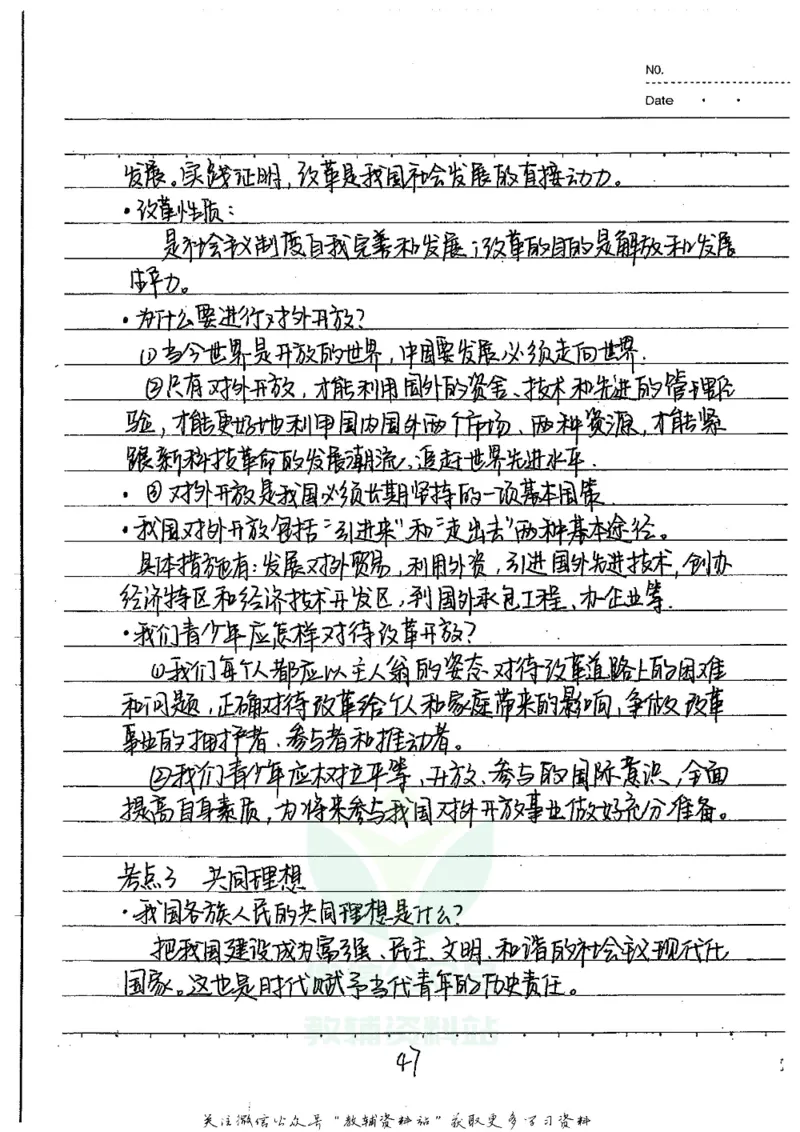 NO.
Date
发展。实践证明,改革是我国社会发展的直接动力。
·改革性质:
是社会主义制度自我完善和发展;改革的目的是解放和发展
生产力。
·为什么要进行对外开放?
①当今世界是开放的世界,中国要发展必须走向世界.
②只有对外开放,才能利用国外的资金、技术和先进的管理经
验,才能更好地利用国内国外两个市场、两种资源,才能紧
跟新科技革命的发展潮流,追赶世界先进水平.
·③对外开放是我国必须长期坚持的一项基本国策.
·我国对外开放包括"引进来"和"走出去"两种基本途径。
具体措施有:发展对外贸易,利用外资,引进国外先进技术,创办
经济特区和经济技术开发区,到国外承包工程、办企业等.
·我们青少年应怎样对待改革开放?
①我们每个人都应以主人翁的姿态对待改革道路上的困难
和问题,正确对待改革给个人和家庭带来的影响,争做改革
事业的拥护者、参与者和推动者。
②我们青少年应树立平等、开放、参与的国际意识,全面
提高自身素质,为将来参与我国对外开放事业做好充分准备。
考点3 共同理想
·我国各族人民的共同理想是什么?
把我国建设成为富强、民主、文明、和谐的社会主义现代化
国家。这也是时代赋予当代青年的历史责任。
教辅资料站
47
关注微信公众号"教辅资料站"获取更多学习资料